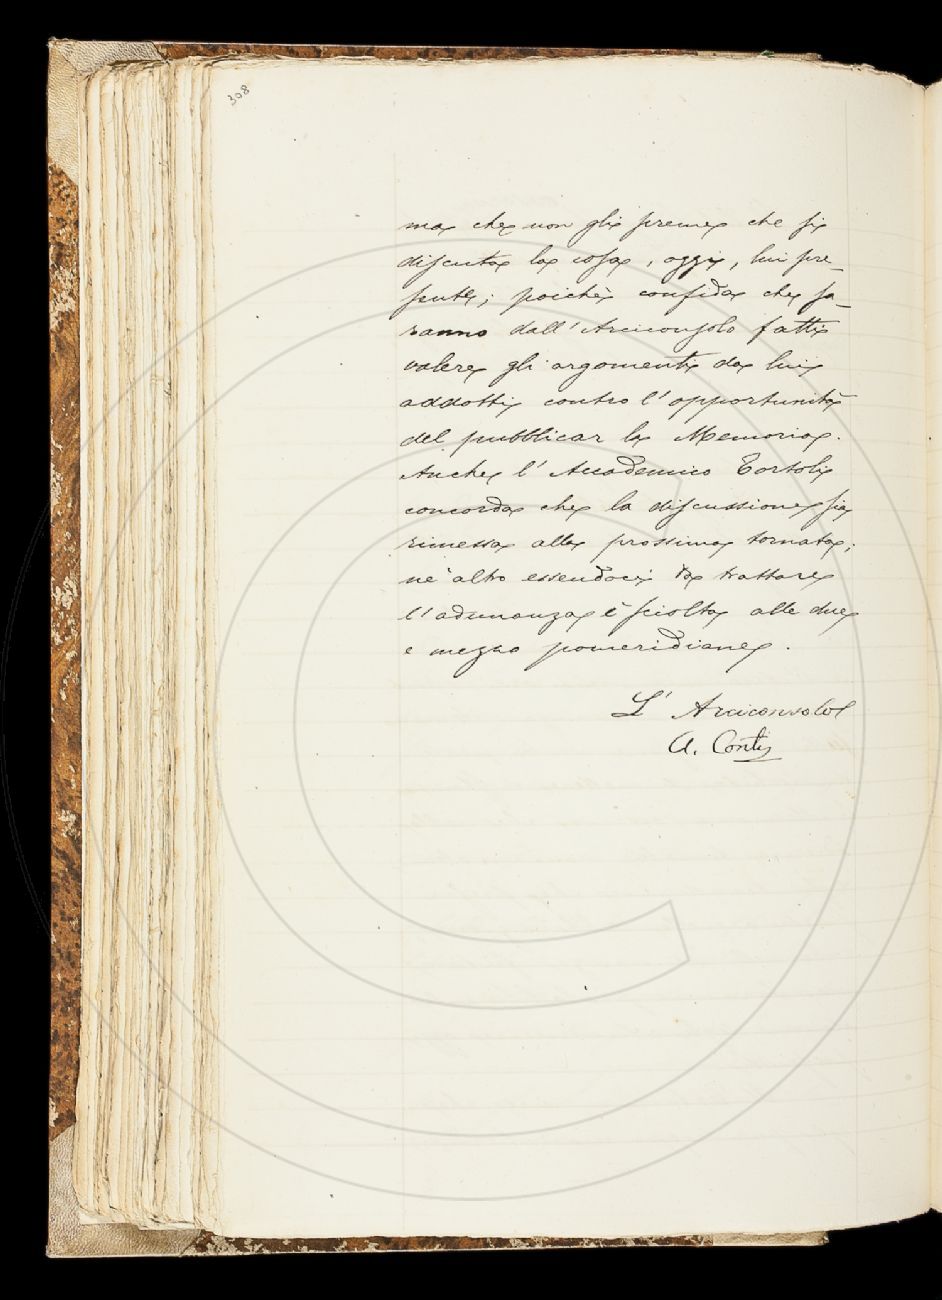 308
ma che non gli preme che si
discuta la cosa, oggi, lui pre_
sente; poichè confida che sa_
ranno dall'Arciconsolo fatti
valere gli argomenti da lui
addotti contro l'opportunità
del pubblicar la Memoria.
Anche l'Accademico Tortoli
concorda che la discussione sia
rimessa alla prossima tornata;
nè altro essendoci da trattare
l'adunanza è sciolta alle due
e mezzo pomeridiane.
L'Arciconsolo
A. Conti